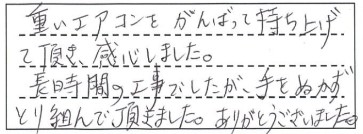 重いエアコンを がんばって持ち上げ
て頂き、感心しました。
長時間の工事でしたが、手をぬかず
とり組んで頂きました。ありがとうございました。